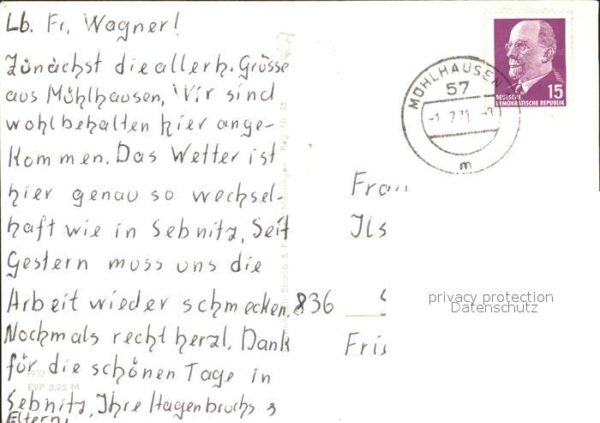 Lb. Fr. Wagner!
Zunächst die allerh. Grüsse
aus Mühlhausen, Wir sind
wohlbehalten hier ange-
kommen. Das Wetter ist
hier genau so wechsel-
haft wie in Sebnitz, Seit
Gestern muss uns die
Arbeit wieder schmecken.
Nochmals recht herzl. Dank
für die schönen Tage in
Sebnitz, Ihre Hagenbruchs
Eltern.
EVP 0.25 M
MÜHLHAUSEN
57
m
15
DEUTSCHE
DEMOKRATISCHE REPUBLIK
Frau
Ils
836
Fris
privacy protection
Datenschutz